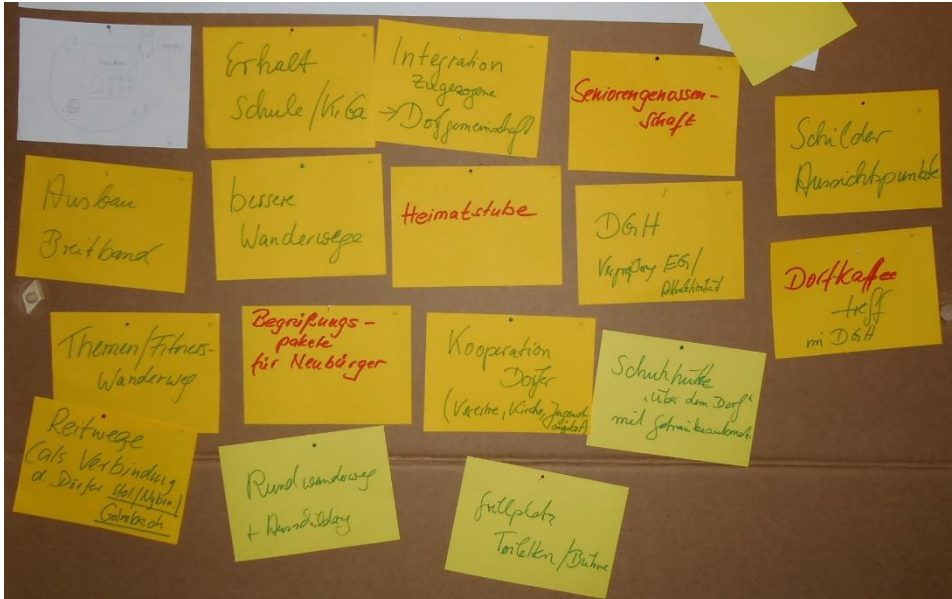 Erhalt
Schule/KiGa
Integration
Zugezogene
→ Dorfgemeinschaft
Seniorengenossen-
schaft
Schilder
Aussichtspunkte
Ausbau
Breitband
bessere
Wanderwege
Heimatstube
DGH
EG/
Attraktivität
Dorfkaffee
treff
im DGH
Themen/Fitness-
Wanderweg
Begrüßungs-
pakete
für Neubürger
Kooperation
Dörfer
(Vereine, Kirche, Jugend-
angebot)
Schutzhütte
"über dem Dorf"
mit Getränkeautomat
Reitwege
(als Verbindung
d. Dörfer
Golmbach
Rundwanderweg
+ Ausschilderung
Grillplatz
Toiletten/Bühne